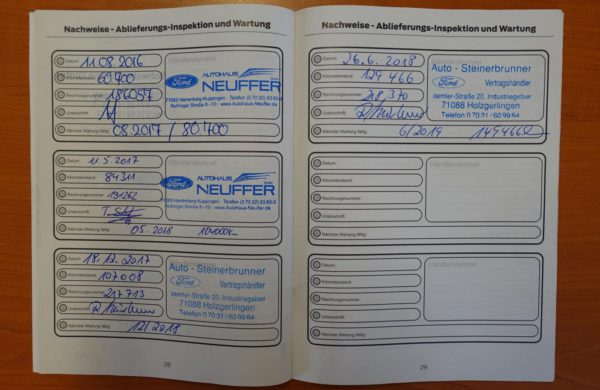 Nachweise - Ablieferungs-Inspektion und Wartung
Datum: 11.08.2016
Händlerstempel
Kilometerstand: 60.400
Rechnungsnummer: 186057
Unterschrift:
Nächste Wartung fällig: 08.2017 / 80.400
Ford AUTOHAUS
NEUFFER GmbH
71083 Herrenberg-Kuppingen Telefon (0 70 32)
Nufringer Straße 8-10 · www.Autohaus-Neuffer.de
Datum: 11.5.2017
Händlerstempel
Kilometerstand: 84311
Rechnungsnummer: 191262
Unterschrift:
Nächste Wartung fällig: 05.2018 104000K
Ford AUTOHAUS
NEUFFER GmbH
71083 Herrenberg-Kuppingen Telefon (0 70 32)
Nufringer Straße 8-10 · www.Autohaus-Neuffer.de
Datum: 18.12.2017
Händlerstempel
Kilometerstand: 107008
Rechnungsnummer: 217713
Unterschrift:
Nächste Wartung fällig: 12/2018
Auto - Steinerbrunner
Ford Vertragshändler
Jasmler-Straße 20, Industriegebiet
71088 Holzgerlingen
Telefon 0 70 31/60 99 64
28
Nachweise - Ablieferungs-Inspektion und Wartung
Datum: 26.6.2018
Händlerstempel
Kilometerstand:
Rechnungsnummer: 218370
Unterschrift:
Nächste Wartung fällig: 6/2019
Auto - Steinerbrunner
Ford Vertragshändler
Jasmler-Straße 20, Industriegebiet
71088 Holzgerlingen
Telefon 0 70 31/60 99 64
Datum:
Händlerstempel
Kilometerstand:
Rechnungsnummer:
Unterschrift:
Nächste Wartung fällig:
Datum:
Händlerstempel
Kilometerstand:
Rechnungsnummer:
Unterschrift:
Nächste Wartung fällig:
29